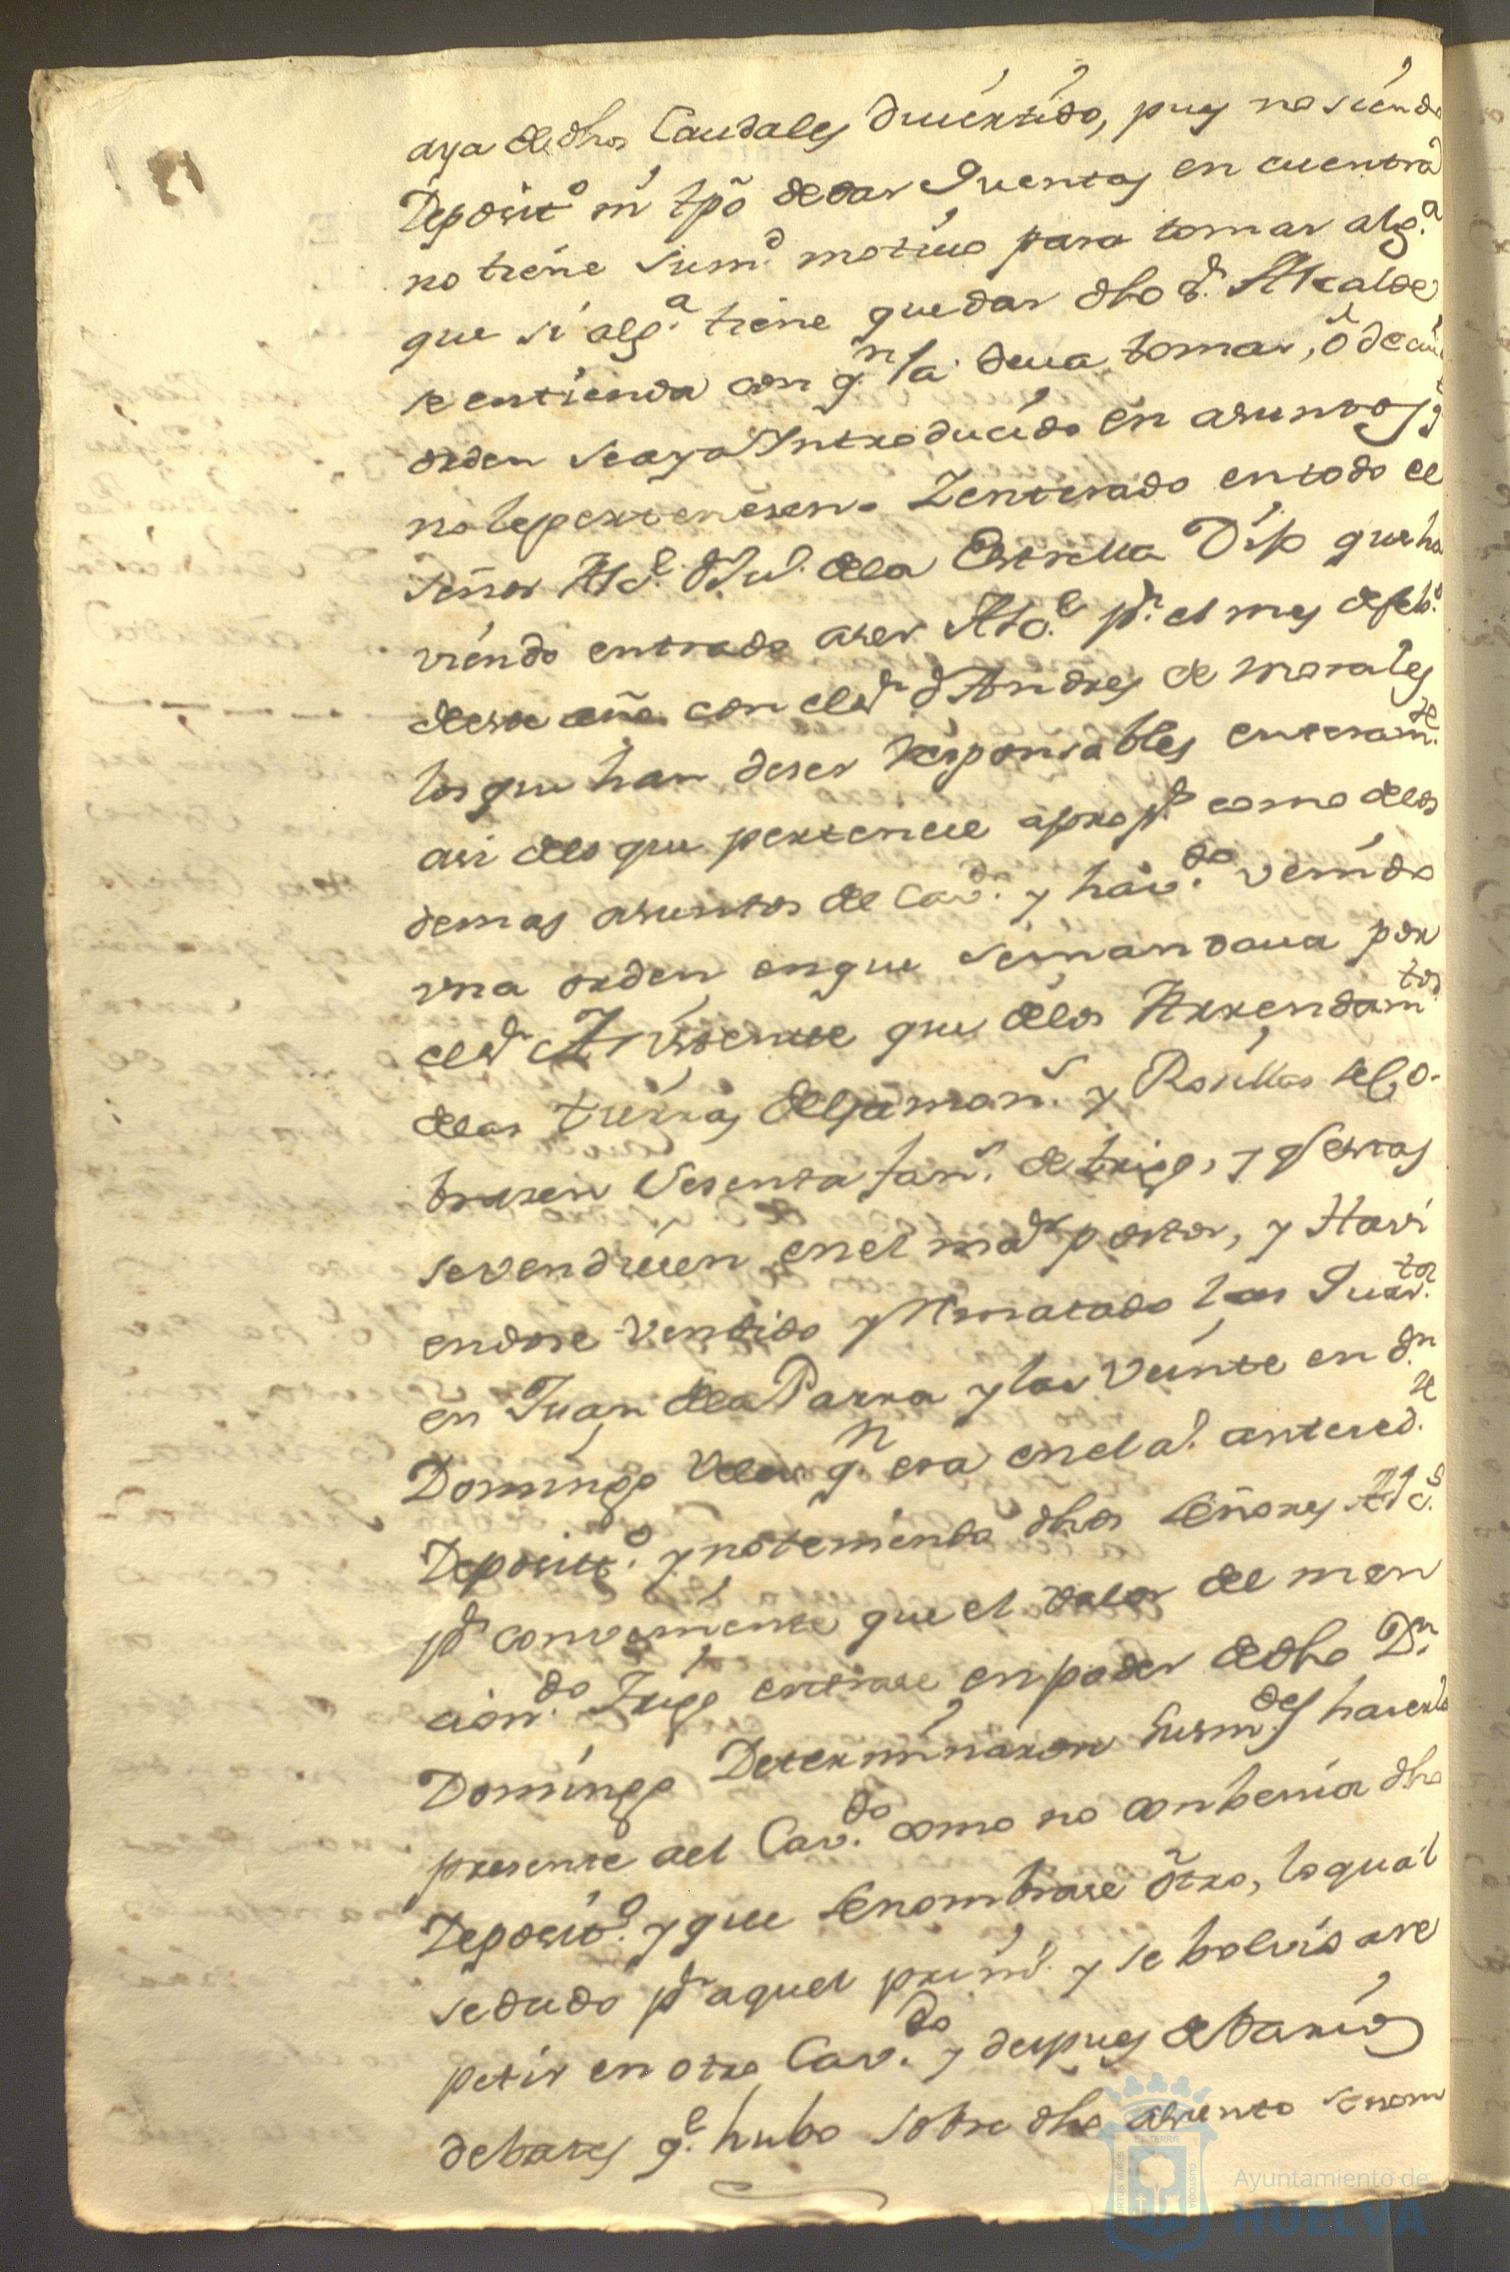 aya de dhos Caudales diuertido, pues no siendo
Deposit.º ni tpõ de dar Quentas en cuentra
no tiene sum.d motiuo para tomar alg.a
que si alg.a tiene que dar dho s.r Alcalde
se entienda con q.n la deua tomar, ò de
orden se aya Yntroducido en asuntos q
no le pertenesen. Yenterado en todo el
señor Alc.e de la Estrella Dijo que ha
viendo entrado a ser Alc.e p.r el mes de feb.o
de este año con el s.r d Andres de Morales
los que han de ser responsables enteram.te
asi de lo que pertenece a prop.s como de los
demas asuntos de Cav.do y hav.do venido
vna orden en que se mandaua por
el s.r Yntendente que de los Arrendam.tos
de las tierras de y Rosillos se Co-
brasen Sesenta fan.s de trigo, y q estas
se vendiesen en el ma.r postor, y Havi
endose Vendido y Rematado las Quar.ta
en Juan de la Parra y las Veinte en d.n
Domingo q.n era en el a.o anteced.te
Deposit.o y no teniendo dhos señores Alc.s
p.r conveniente que el valor del men
cion.do trigo entrase en poder de dho D.n
Domingo Determinaron sus m.des hacerlo
presente a el Cav.do como no conbenia dho
Deposit.o y que se nombrase òtro, lo qual
se dudo p.r aquel y se bolvio a re
petir en otro Cav.do y despues de barios
debates q.e hubo sobre dho asunto se nom
Ayuntamiento de
HUELVA